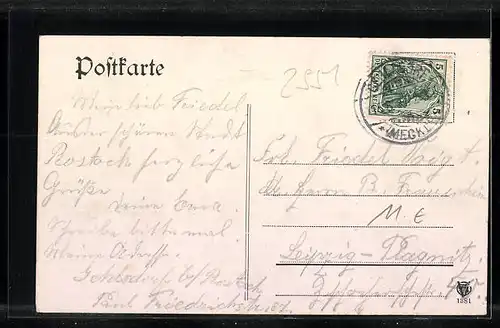 Postkarte
2551
Mein lieb Friedel
Aus der schönen Stadt
Rostock herzliche
Grüße
deine Cora.
Schreibe bitte mal.
Meine Adresse:
Gehlsdorf b/ Rostock
Paul Friedrichstr.
5
5
(MECKL
Frl. Friedel Voigt.
Herrn B.
M. E
Leipzig-Plagwitz.
1381